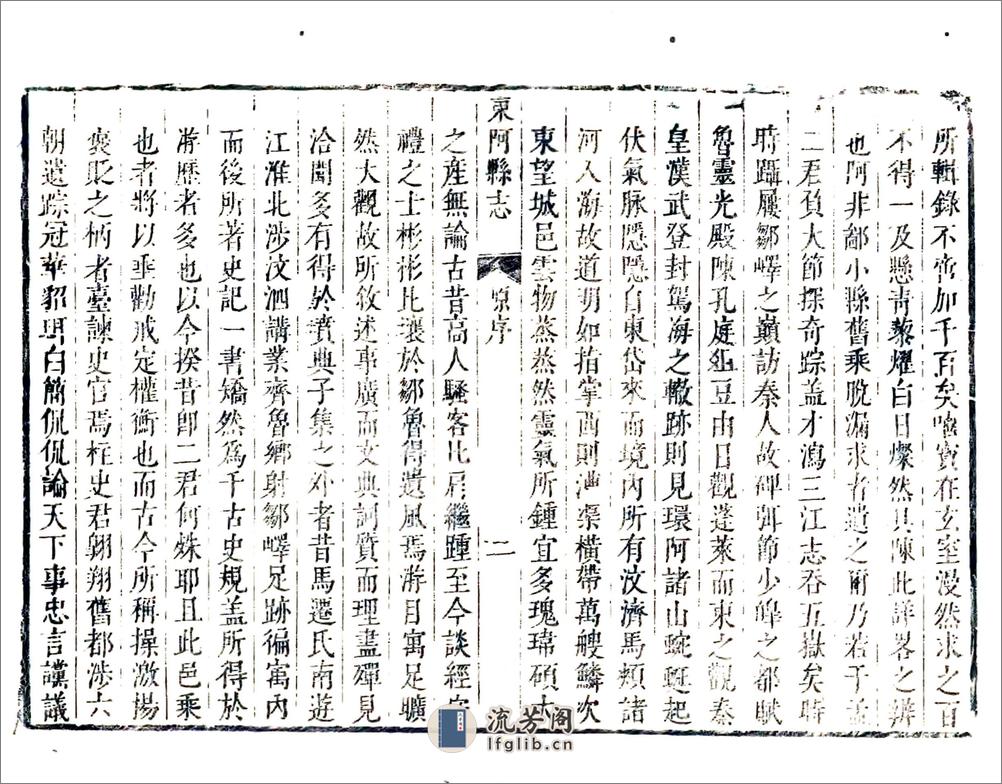 所輯錄不啻加千百矣喻寶在玄室漫然求之百
不得一及懸青藜燿白日燦然具陳此詳畧之辨
也阿非鄙小縣舊乘脫漏求者遺之爾乃若于孟
二君負大節探奇踪盖才瀉三江志吞五嶽矣時
時躡屩鄒嶧之巔訪秦人故碑弭節少皞之都賦
魯靈光殿陳孔庭俎豆由日觀蓬萊而東之觀秦
皇漢武登封駕海之轍跡則見環阿諸山蜿蜒起
伏氣脉隱隱自東岱來而境內所有汶濟馬頰諸
河入海故道明如指掌西則漕渠橫帶萬艘鱗次
東望城邑雲物蒸蒸然靈氣所鍾宜多瑰瑋碩大
東阿縣志 原序 二
之產無論古昔高人騷客比肩繼踵至今談經
禮之士彬彬比壤於鄒魯得遺風焉游目寓足曠
然大觀故所敘述事廣而文典詞質而理盡殫見
洽聞多有得於賁典子集之外者昔馬遷氏南遊
江淮北涉汶泗講業齊魯鄉射鄒嶧足跡徧寓內
而後所著史記一書矯然為千古史規盖所得於
游歷者多也以今揆昔即二君何殊耶且此邑乘
也者將以垂勸戒定權衡也而古今所稱操激揚
褒貶之柄者臺諫史官焉柱史君翱翔舊都涉六
朝遺踪冠峩貂珥白簡侃侃論天下事忠言讜議
流芳阁
lfglib.cn